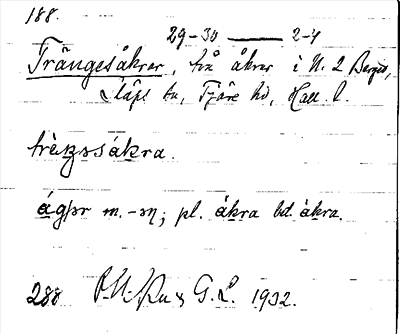 188.
29-30 — 2-4
Trängesåkrar, två åkrar i N. 2 Berget,
Släps sn, Fjäre hd, Hall. l.
trèŋsåkra.
m. -ən; pl. åkra bd. åkra.
288 G. L. 1932.